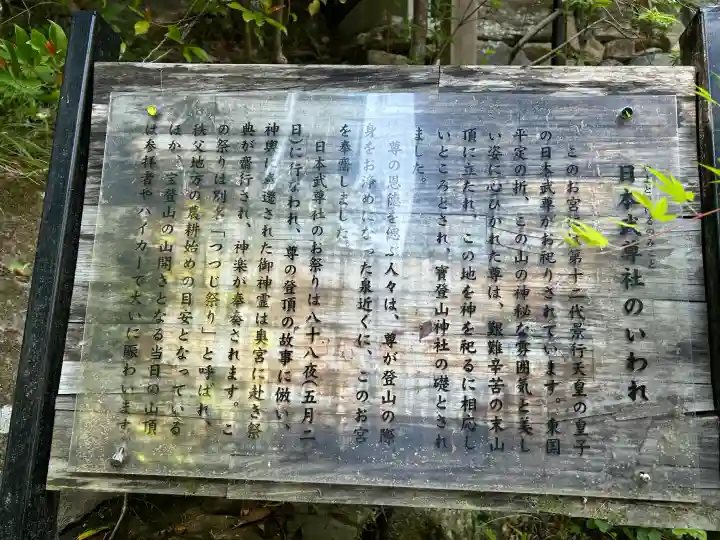 日本武尊社のいわれ
とのみこと
このお宮は第十二代景行天皇の皇子
の日本武尊がお祀りされています。東国
平定の折、この山の神秘な雰囲気と美し
い姿に心ひかれた尊は、艱難辛苦の末山
頂に立たれ、この地を神を祀るに相応し
いところとされ、寶登山神社の礎とされ
ました。
尊の恩徳を偲ぶ人々は、尊が登山の際
身をお浄めになった泉近くに、このお宮
を奉齋しました。
日本武尊社のお祭りは八十八夜(五月二
日)に行なわれ、尊の登頂の故事に倣い、
神輿に遷された御神霊は奥宮に赴き祭
典が齋行され、神楽が奉奏されます。こ
の祭りは別名「つつじ祭り」と呼ばれ、
秩父地方の農耕始めの目安となっている
ほか、宝登山の山開きとなる当日の山頂
は参拝者やハイカーで大いに賑わいます。